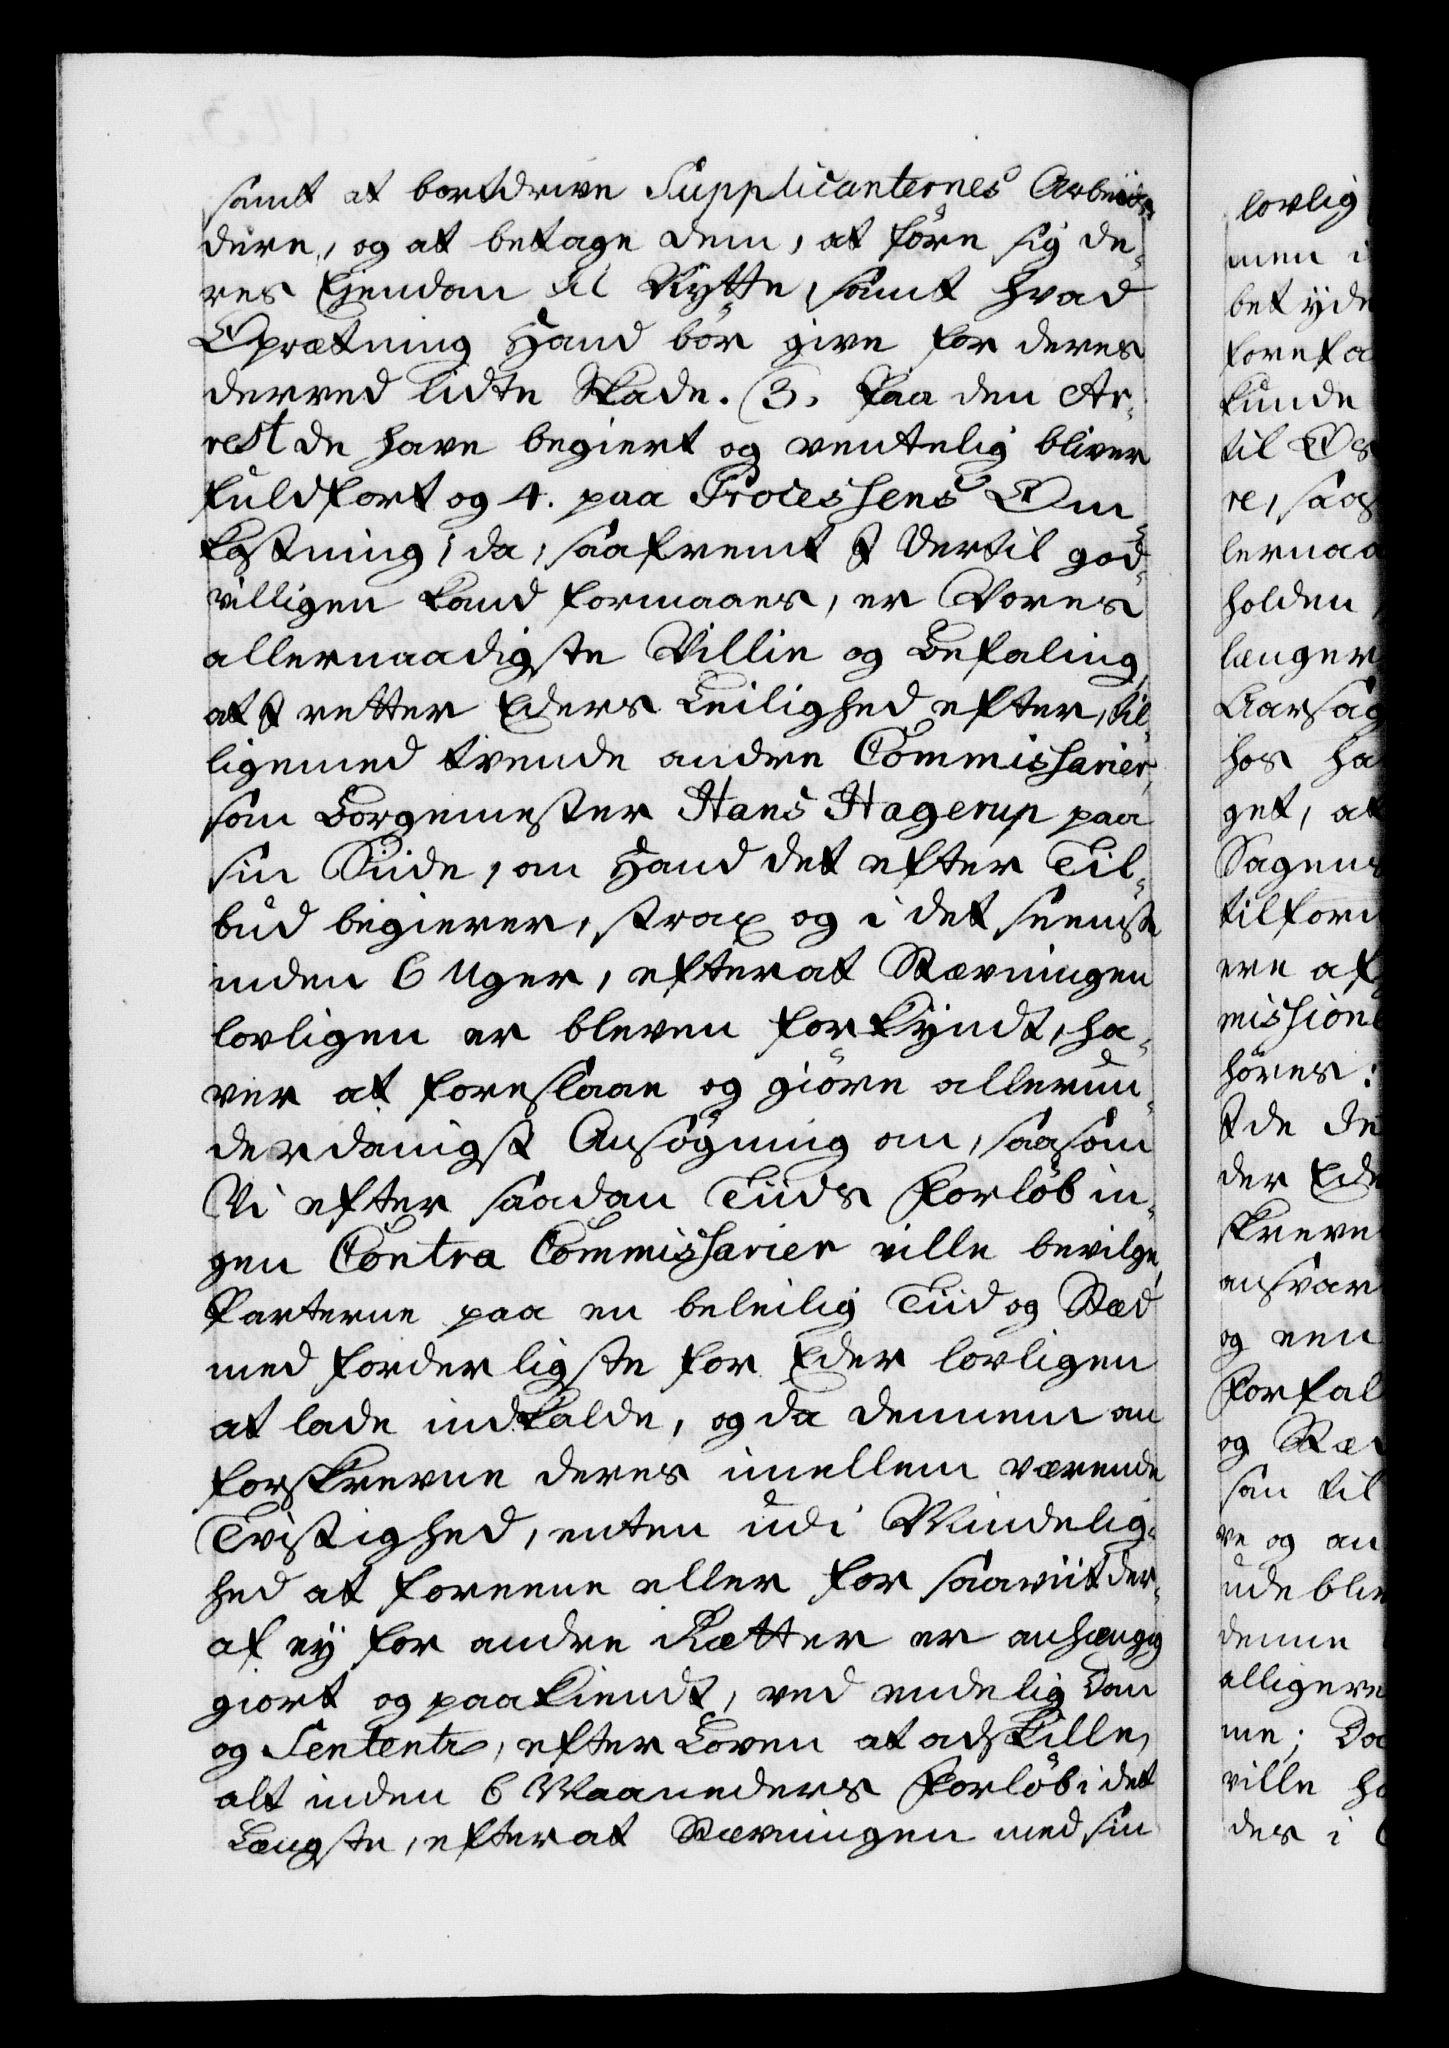 samt at bortdrive Supplicanternes Arbeids-
dere, og at betage dem, at före sig de-
res Ejendom til Nÿtte, samt hvad
Oprætning Hand bör give for deres
derved lidte Skade. 3. Paa den Ar-
rest de have begiert og ventelig bliver
fuldfört og 4. paa Processens Om-
kostning; da, saafremt I dertil god-
villigen kand formaaes, er Vores
allernaadigste Villie og Befaling,
at I retter Eders Leilighed efter, til-
ligemed tvende andre Commissarier,
som Borgemester Hans Hagerup paa
sin Siide, om Hand det efter Til-
bud begierer, strax og i det seeniste
inden 6 Uger, efterat Stævningen
lovligen er bleven forkÿndt, ha-
ver at foreslaae og giöre allerun-
derdanigst Ansögning om, saasom
Vi efter saadan Tiids Forlöb in-
gen Contra Commissarier ville bevilge,
Parterne paa en beleilig Tiid og Stæd
med forderligste for Eder lovligen
at lade indkalde, og da dennem om
forskrevne deres imellem værende
Tvistighed, enten udi Mindelig-
hed at foreene eller for saaviit der-
af eÿ for andre Rætter er anhængig
giort og paakiendt, ved endelig Dom
og Sententz, efter Loven at adskille,
alt inden 6 Maaneders Forlöb i det
Længste, efterat Stævningen med sin
lovlig
men i
betÿde
forefa
kunde
til Os
re, saa
lernaa
holden
længer
Aarsag
hos ha
get, at
Sagens
tilforn
ere af
mission
höres:
I de
der Ede
skreve
ansvar
og een
Forfal
og Stæ
som til
ve og an
udebliv
denne
alligeve
me; Do
ville ha
des i